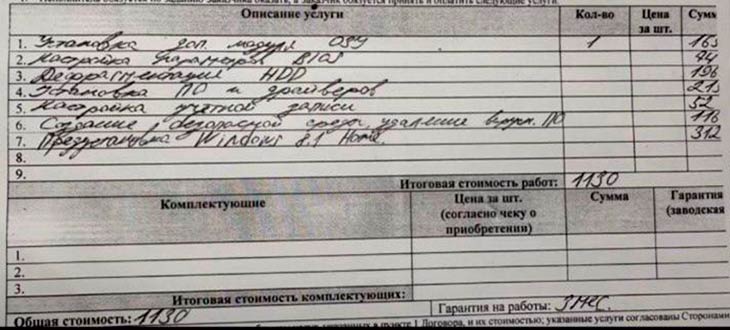 1. Исполнитель обязуется по заданию Заказчика оказать, а Заказчик обязуется принять и оплатить следующие услуги:
Описание услуги Кол-во Цена за шт. Сумм
1. Установка доп. модуля ОЗУ 1 165
2. Настройка параметров BIOS 74
3. Дефрагментация HDD 196
4. Установка ПО и драйверов 215
5. Настройка учетной записи 52
6. Создание безопасной среды, удаление вирусн. ПО 116
7. Предустановка Windows 8.1 Home. 312
8.
9.
Итоговая стоимость работ: 1130
Комплектующие Цена за шт. (согласно чеку о приобретении) Сумма Гарантия (заводская
1.
2.
3.
Итоговая стоимость комплектующих:
Общая стоимость: 1130 Гарантия на работы: 3 мес.
в пункте 1 Договора, и их стоимость; указанные услуги согласованы Сторонами